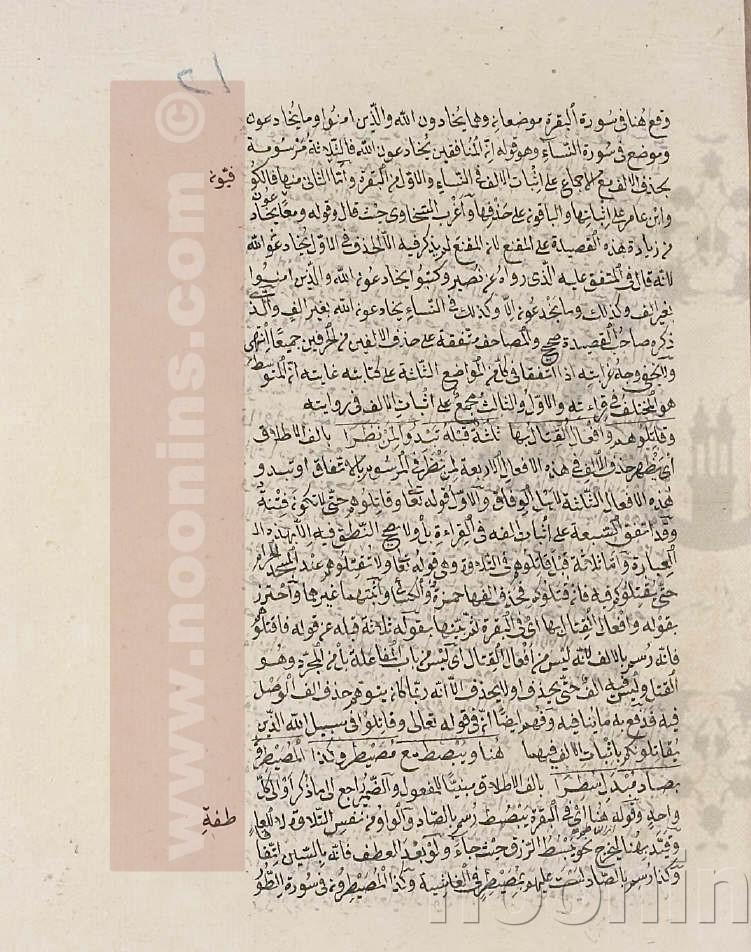 ٢١
وقع هنا في سورة البقرة موضعان وهما يخادعون الله والذين امنوا وما يخادعون
وموضع في سورة النساء وهو قوله ان المنافقين يخادعون الله فالثلاثة مرسومة
بحذف الالف مع الاجماع على اثبات الالف في النساء والاول من البقرة وأما الثاني منها فالكو
فيون
وابن عامر على اثباتها والباقون على حذفها وأغرب السخاوي حيث قال وقوله ومعا يخادعون
من زيادة هذه القصيدة على المقنع لان المقنع لم يذكر فيه الا الحذف في الاول يخادعون الله
لانه قال في المتفق عليه الذي رواه عن نصير وكتبوا يخادعون الله والذين امنوا
بغير الف وكذلك وما يخدعون الا وكذلك في النساء يخادعون الله بغير الف والذي
ذكره صاحب القصيدة صحيح والمصاحف متفقة على حذف الالفين من الحرفين جميعا انتهى
ولا يخفى وجه غرابته اذ اتفقا في كل من المواضع الثلثة على كتابته غايته ان المتوسط
هو المختلف في قراءته والاول والثالث مجمع على اثبات الالف في روايته
وقاتلوهم وافعال القتال بها ثلثة قبله تبدو لمن نظرا بالف الاطلاق
اي يظهر حذف الالف في هذه الافعال الاربعة لمن نظر في المرسوم بالاتفاق او تبدو
هذه الافعال الثلثة لاهل الوفاق والاول قوله تعا وقاتلوهم حتى لا تكون فتنة
وقد اتفق السبعة على اثبات الفه في القراءة بل ولا يصح النطق فيه الا بهذه
العبارة وأما ثلاثة قبل قاتلوهم في التلاوة وهي قوله تعا ولا تقتلوهم عند المسجد الحرام
حتى يقتلوكم فيه فان قتلوكم فحذف الفها حمزة والكسائي واثبتها غيرهما واحترز
بقوله وافعال القتال بها اي في البقرة ثم بينها بقوله ثلاثة قبله عن قوله فاقتلوهم
فانه رسم بالالف لانه ليس من أفعال القتال اي ليس من باب المفاعلة بل من المجرد وهو
القتل وليس فيه الف حتى يحذف او لا يحذف الا انه ربما كان يتوهم حذف الف الوصل
فيه فدفع به ما ينافيه وفهم ايضا ان في قوله تعالى وقاتلوا في سبيل الله الذين
يقاتلونكم باثبات الالف فيهما هنا ويبصط مع مصيطر وكذا المصيطرون
بصاد مبدل سطرا بالف الاطلاق مبنيا للمفعول والضمير راجع الى ما ذكر او الى كل
واحد وقوله هنا اي في البقرة يبصط رسم بالصاد والواو من نفس التلاوة لا للعا
طفة
وقيد بهنا ليخرج نحو يبسط الرزق حيث جاء ولو بعد العطف فانه بالسين اتفاقا
وكذا رسم بالصاد لست عليهم بمصيطر في الغاشية وكذا المصيطرون في سورة الطور
www.noonins.com ©
noonin